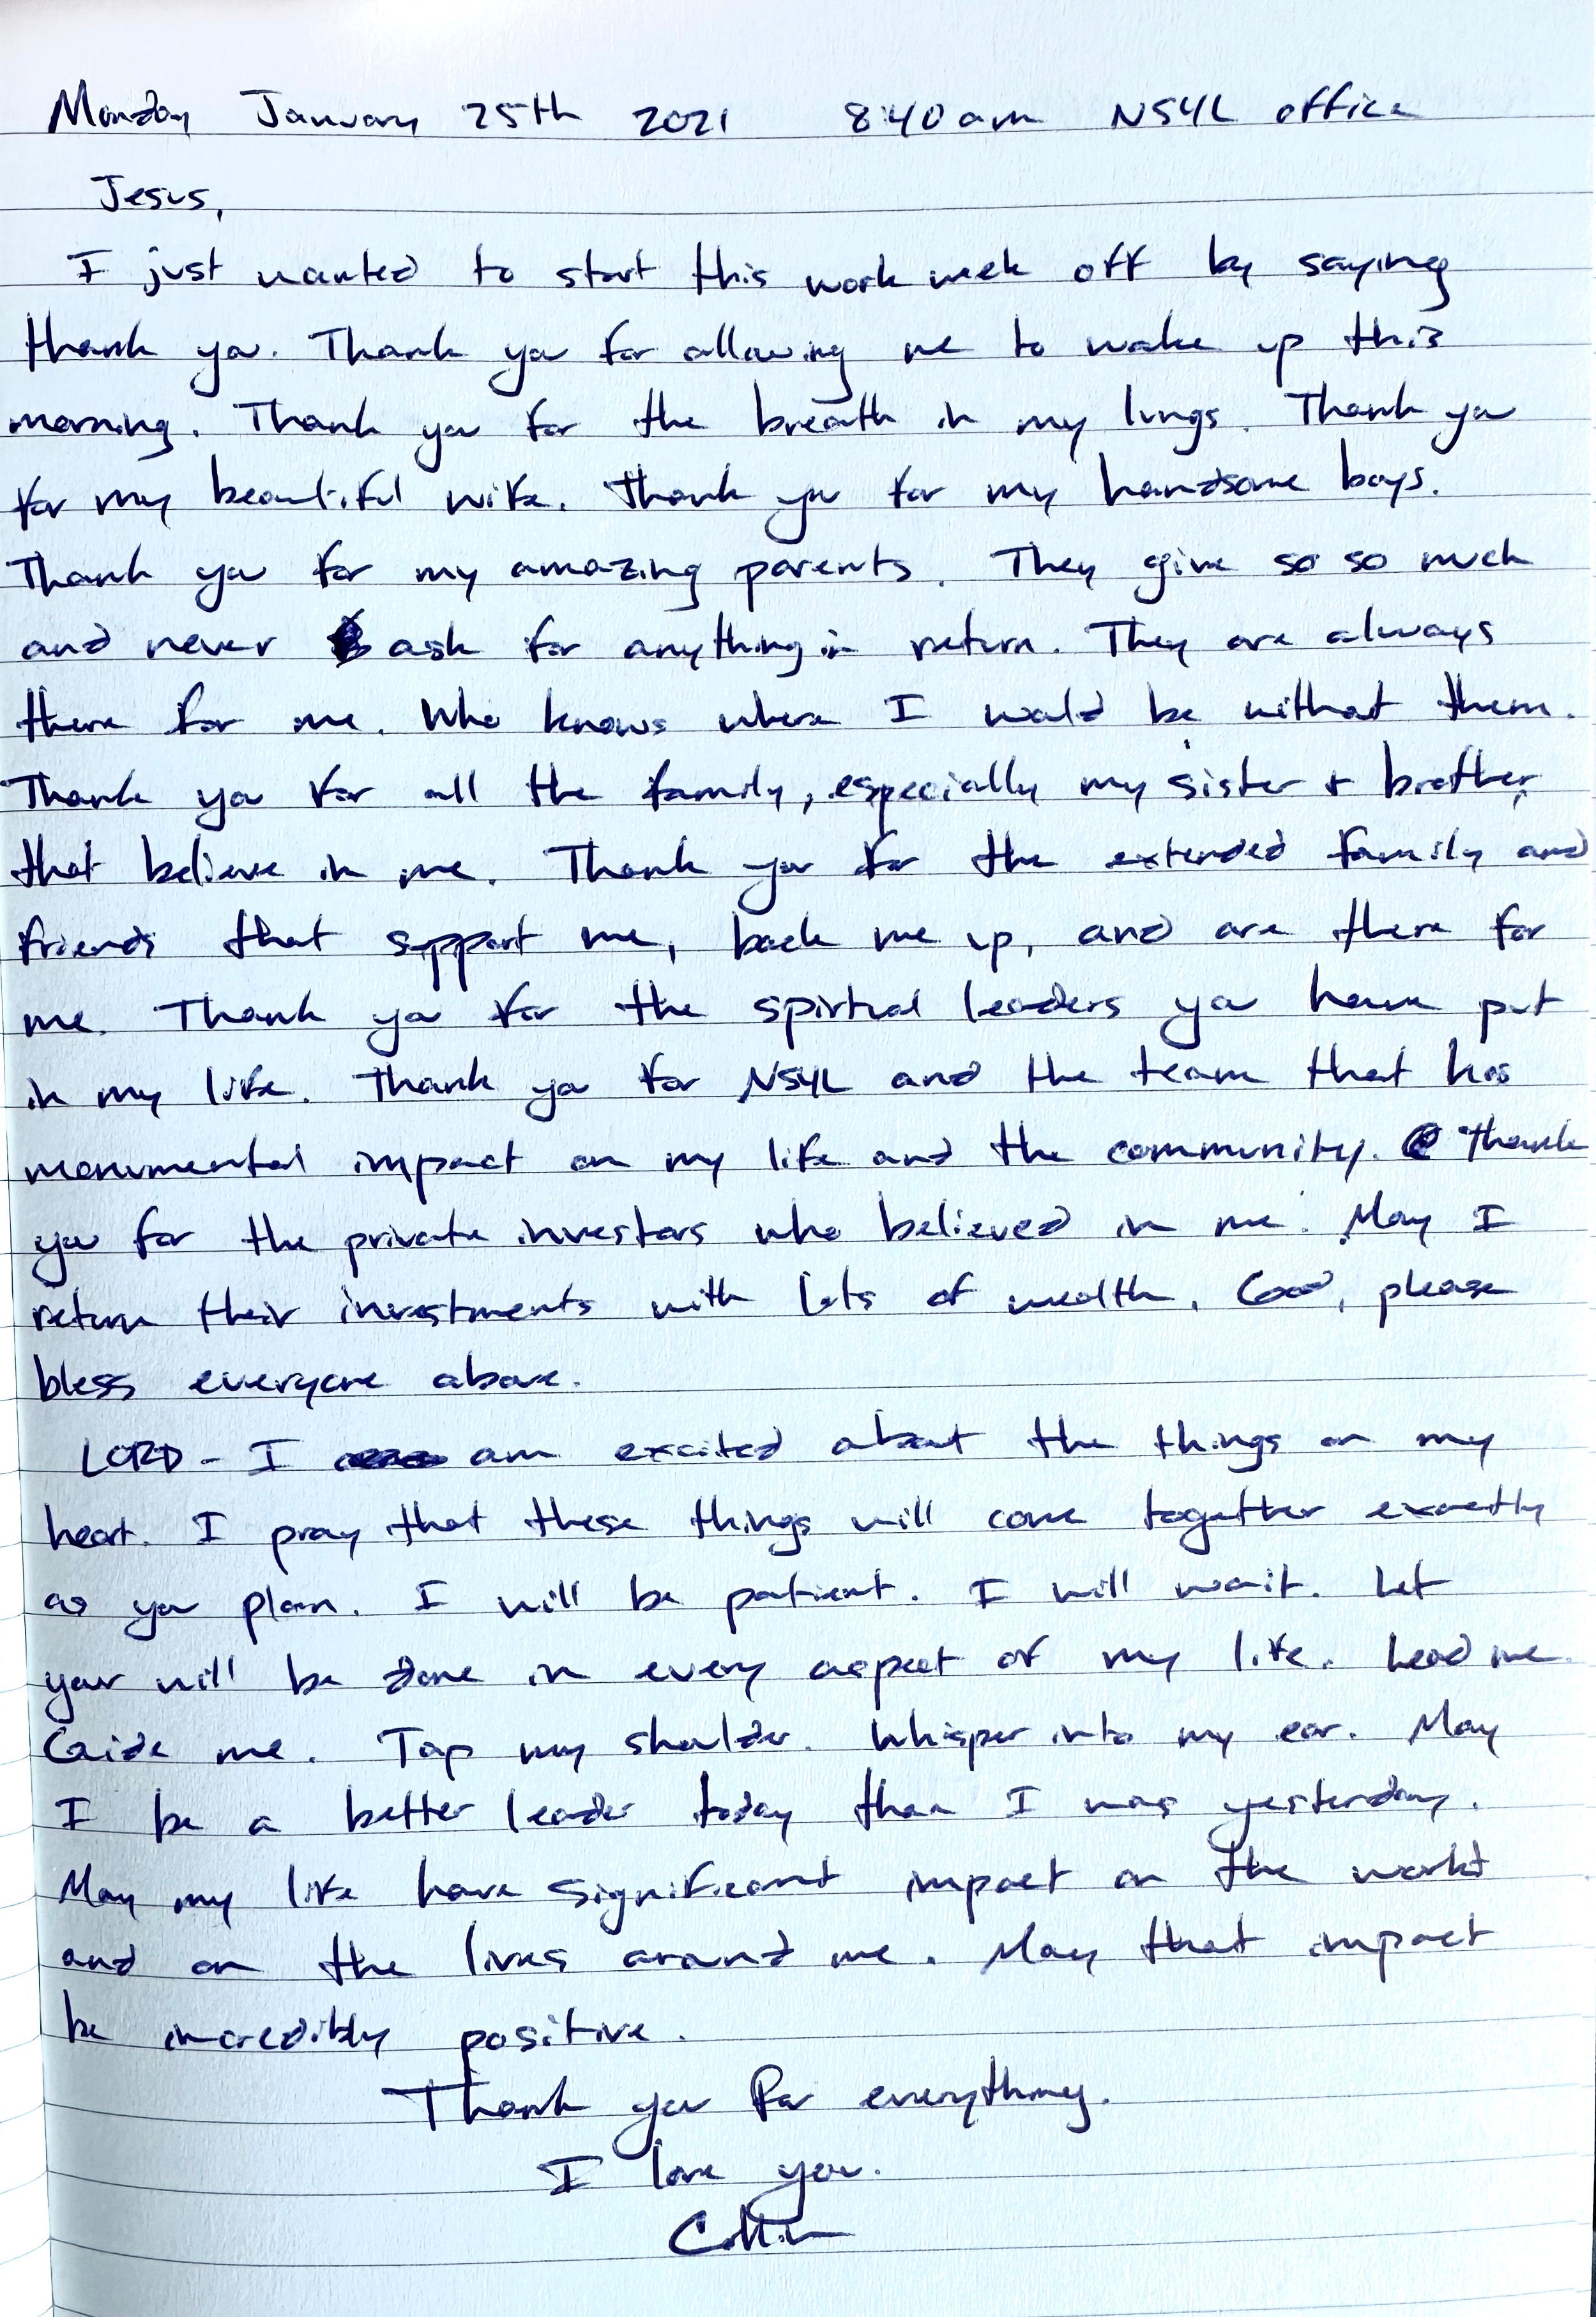 Monday January 25th 2021 8:40am NSYL office
Jesus,
I just wanted to start this work week off by saying
thank you. Thank you for allowing me to wake up this
morning. Thank you for the breath in my lungs. Thank you
for my beautiful wife. Thank you for my handsome boys.
Thank you for my amazing parents. They give so so much
and never ask for anything in return. They are always
there for me. Who knows where I would be without them.
Thank you for all the family, especially my sister + brother,
that believe in me. Thank you for the extended family and
friends that support me, back me up, and are there for
me. Thank you for the spirtual leaders you have put
in my life. Thank you for NSYL and the team that has
monumental impact on my life and the community. Thank
you for the private investors who believed in me. May I
return their investments with lots of wealth. God, please
bless everyone above.
LORD - I am excited about the things on my
heart. I pray that these things will come together exactly
as you plan. I will be patient. I will wait. Let
your will be done in every aspect of my life. Lead me.
Guide me. Tap my shoulder. Whisper into my ear. May
I be a better leader today than I was yesterday.
May my life have significant impact on the world
and on the lives around me. May that impact
be incredibly positive.
Thank you for everything.
I love you.